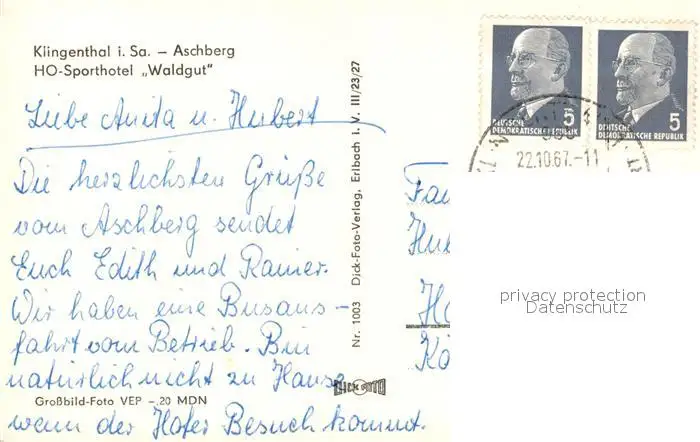 Klingenthal i. Sa. – Aschberg
HO-Sporthotel „Waldgut"
Liebe Anita u. Hubert
Die herzlichsten Grüße
vom Aschberg sendet
Euch Edith und Rainer.
Wir haben eine Busaus-
fahrt vom Betrieb. Bin
natürlich nicht zu Hause
wenn der Hofer Besuch kommt.
Großbild-Foto VEP –.20 MDN
DICK FOTO
Nr. 1003 Dick-Foto-Verlag, Erlbach i. V. III/23/27
5
DEUTSCHE
DEMOKRATISCHE REPUBLIK
5
DEUTSCHE
DEMOKRATISCHE REPUBLIK
22.10.67.-11
Fa
Hu
Ho
Kö
privacy protection
Datenschutz